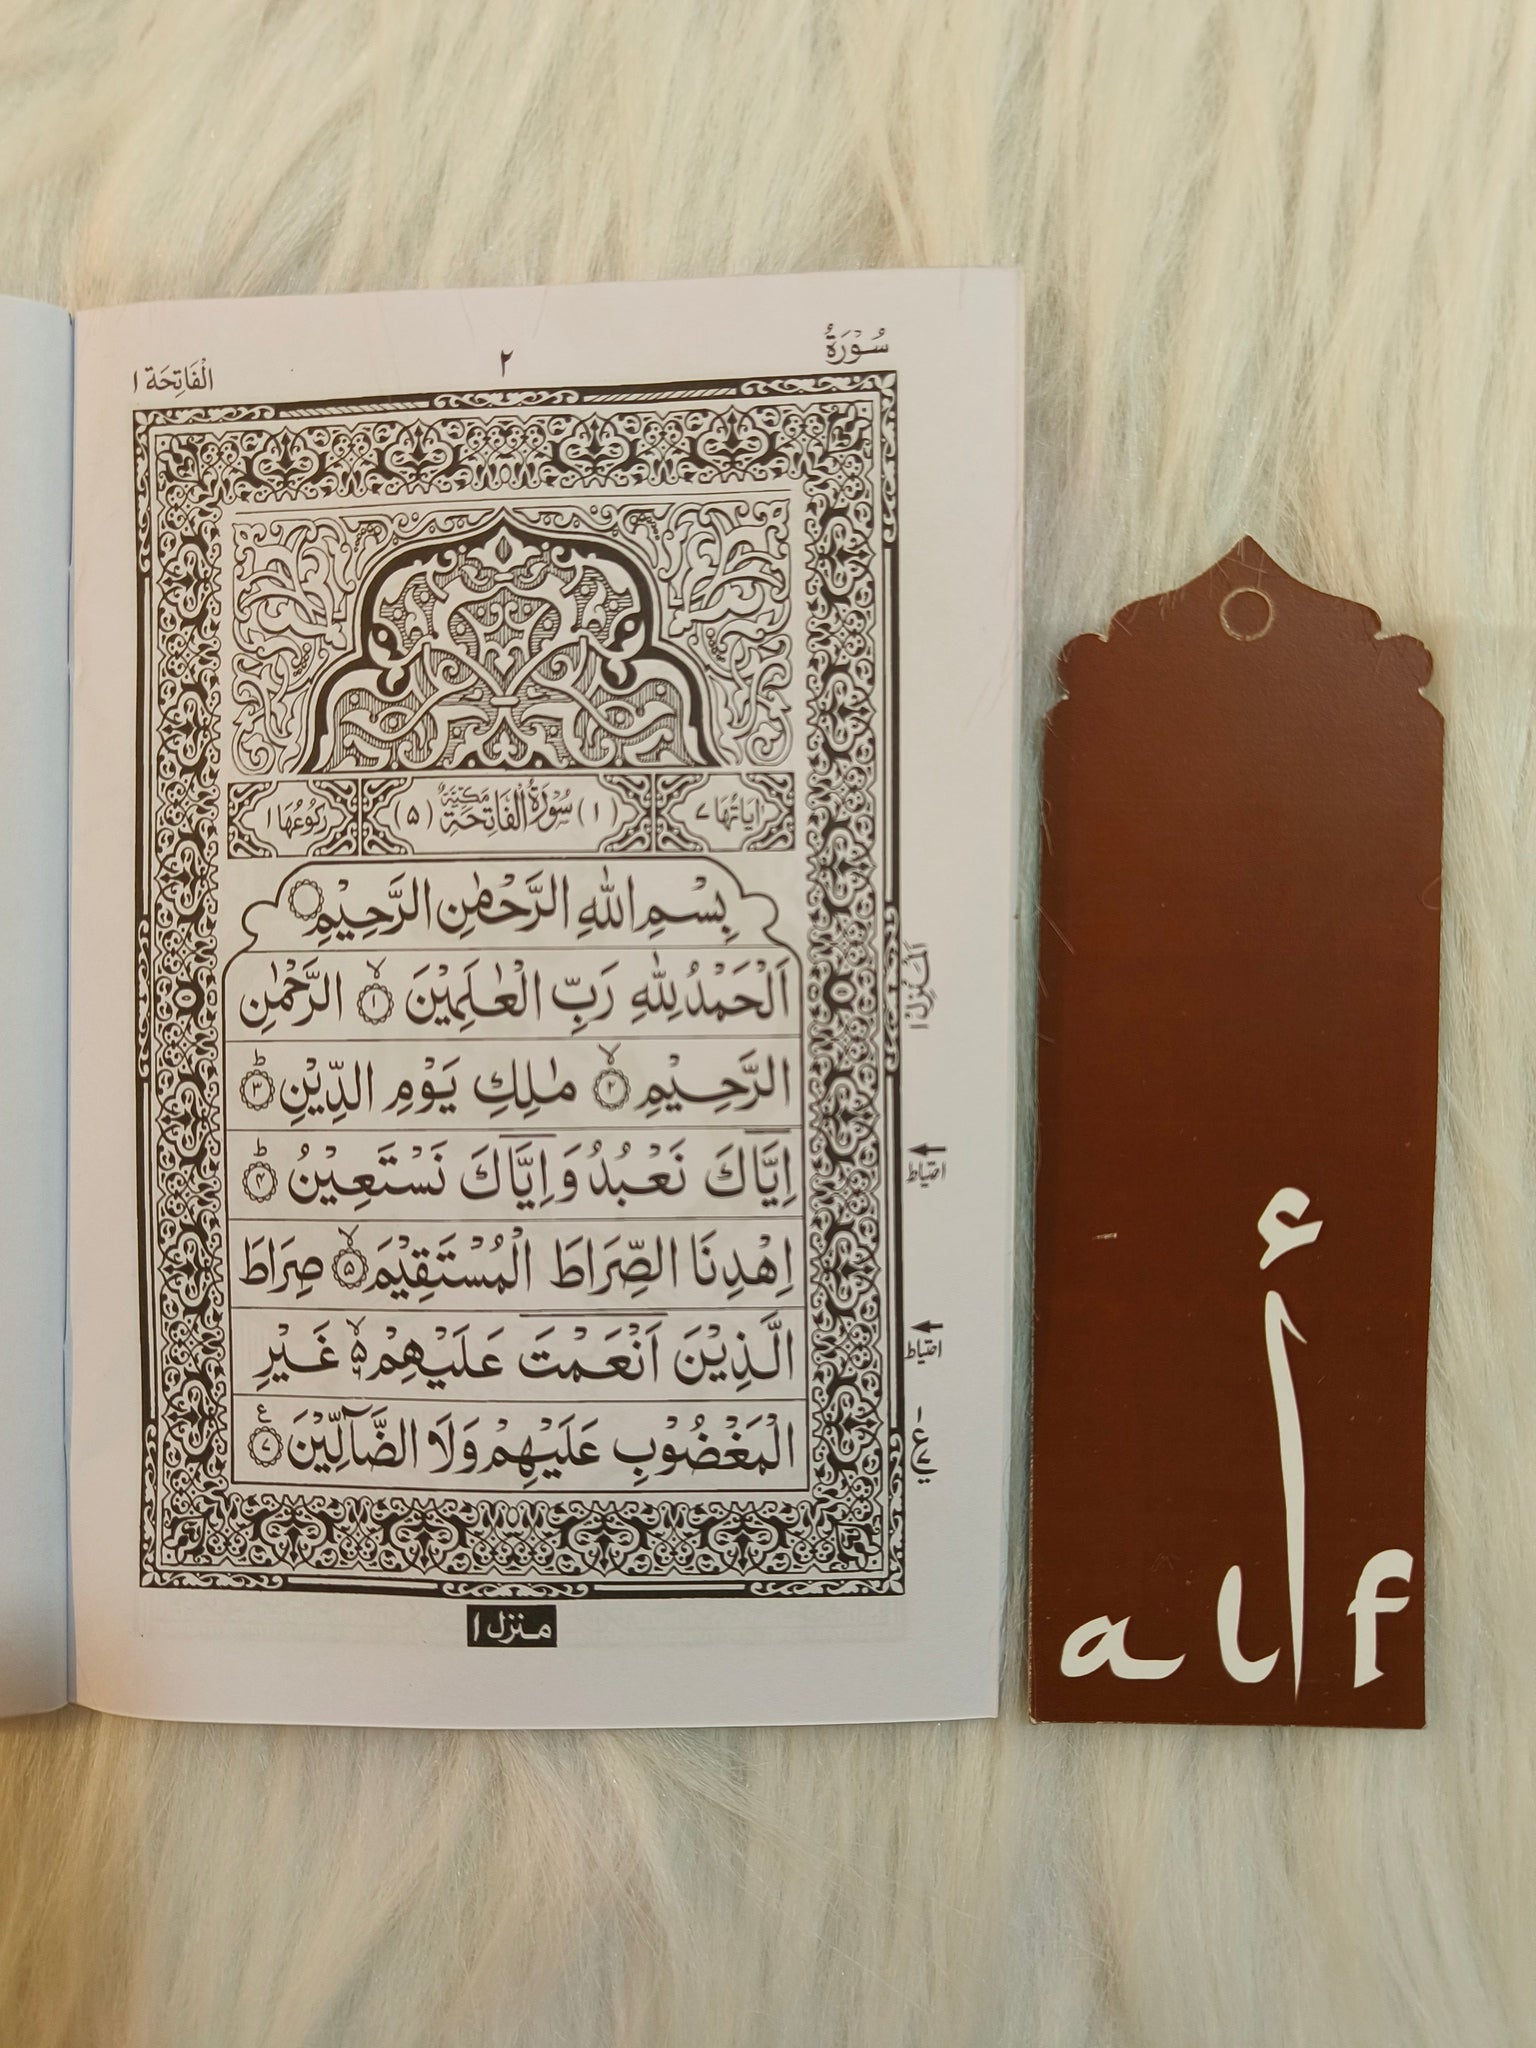 سُوْرَةُ
٢
الْفَاتِحَة ١
اٰيَاتُهَا ٧
(١) سُوْرَةُ الْفَاتِحَةِ مَكِّيَّةٌ (٥)
رُكُوْعُهَا ١
بِسْمِ اللّٰهِ الرَّحْمٰنِ الرَّحِيْمِ
اَلْحَمْدُ لِلّٰهِ رَبِّ الْعٰلَمِيْنَ ۙ ١ الرَّحْمٰنِ
الرَّحِيْمِ ۙ ٢ مٰلِكِ يَوْمِ الدِّيْنِ ؕ ٣
اِيَّاكَ نَعْبُدُ وَاِيَّاكَ نَسْتَعِيْنُ ؕ ۴
اِهْدِنَا الصِّرَاطَ الْمُسْتَقِيْمَ ۙ ۵ صِرَاطَ
الَّذِيْنَ اَنْعَمْتَ عَلَيْهِمْ ۙ۵ غَيْرِ
الْمَغْضُوْبِ عَلَيْهِمْ وَلَا الضَّآلِّيْنَ ع ٧
اَلْمَنْزِل ١
احتیاط
احتیاط
منزل ١
أ
alf